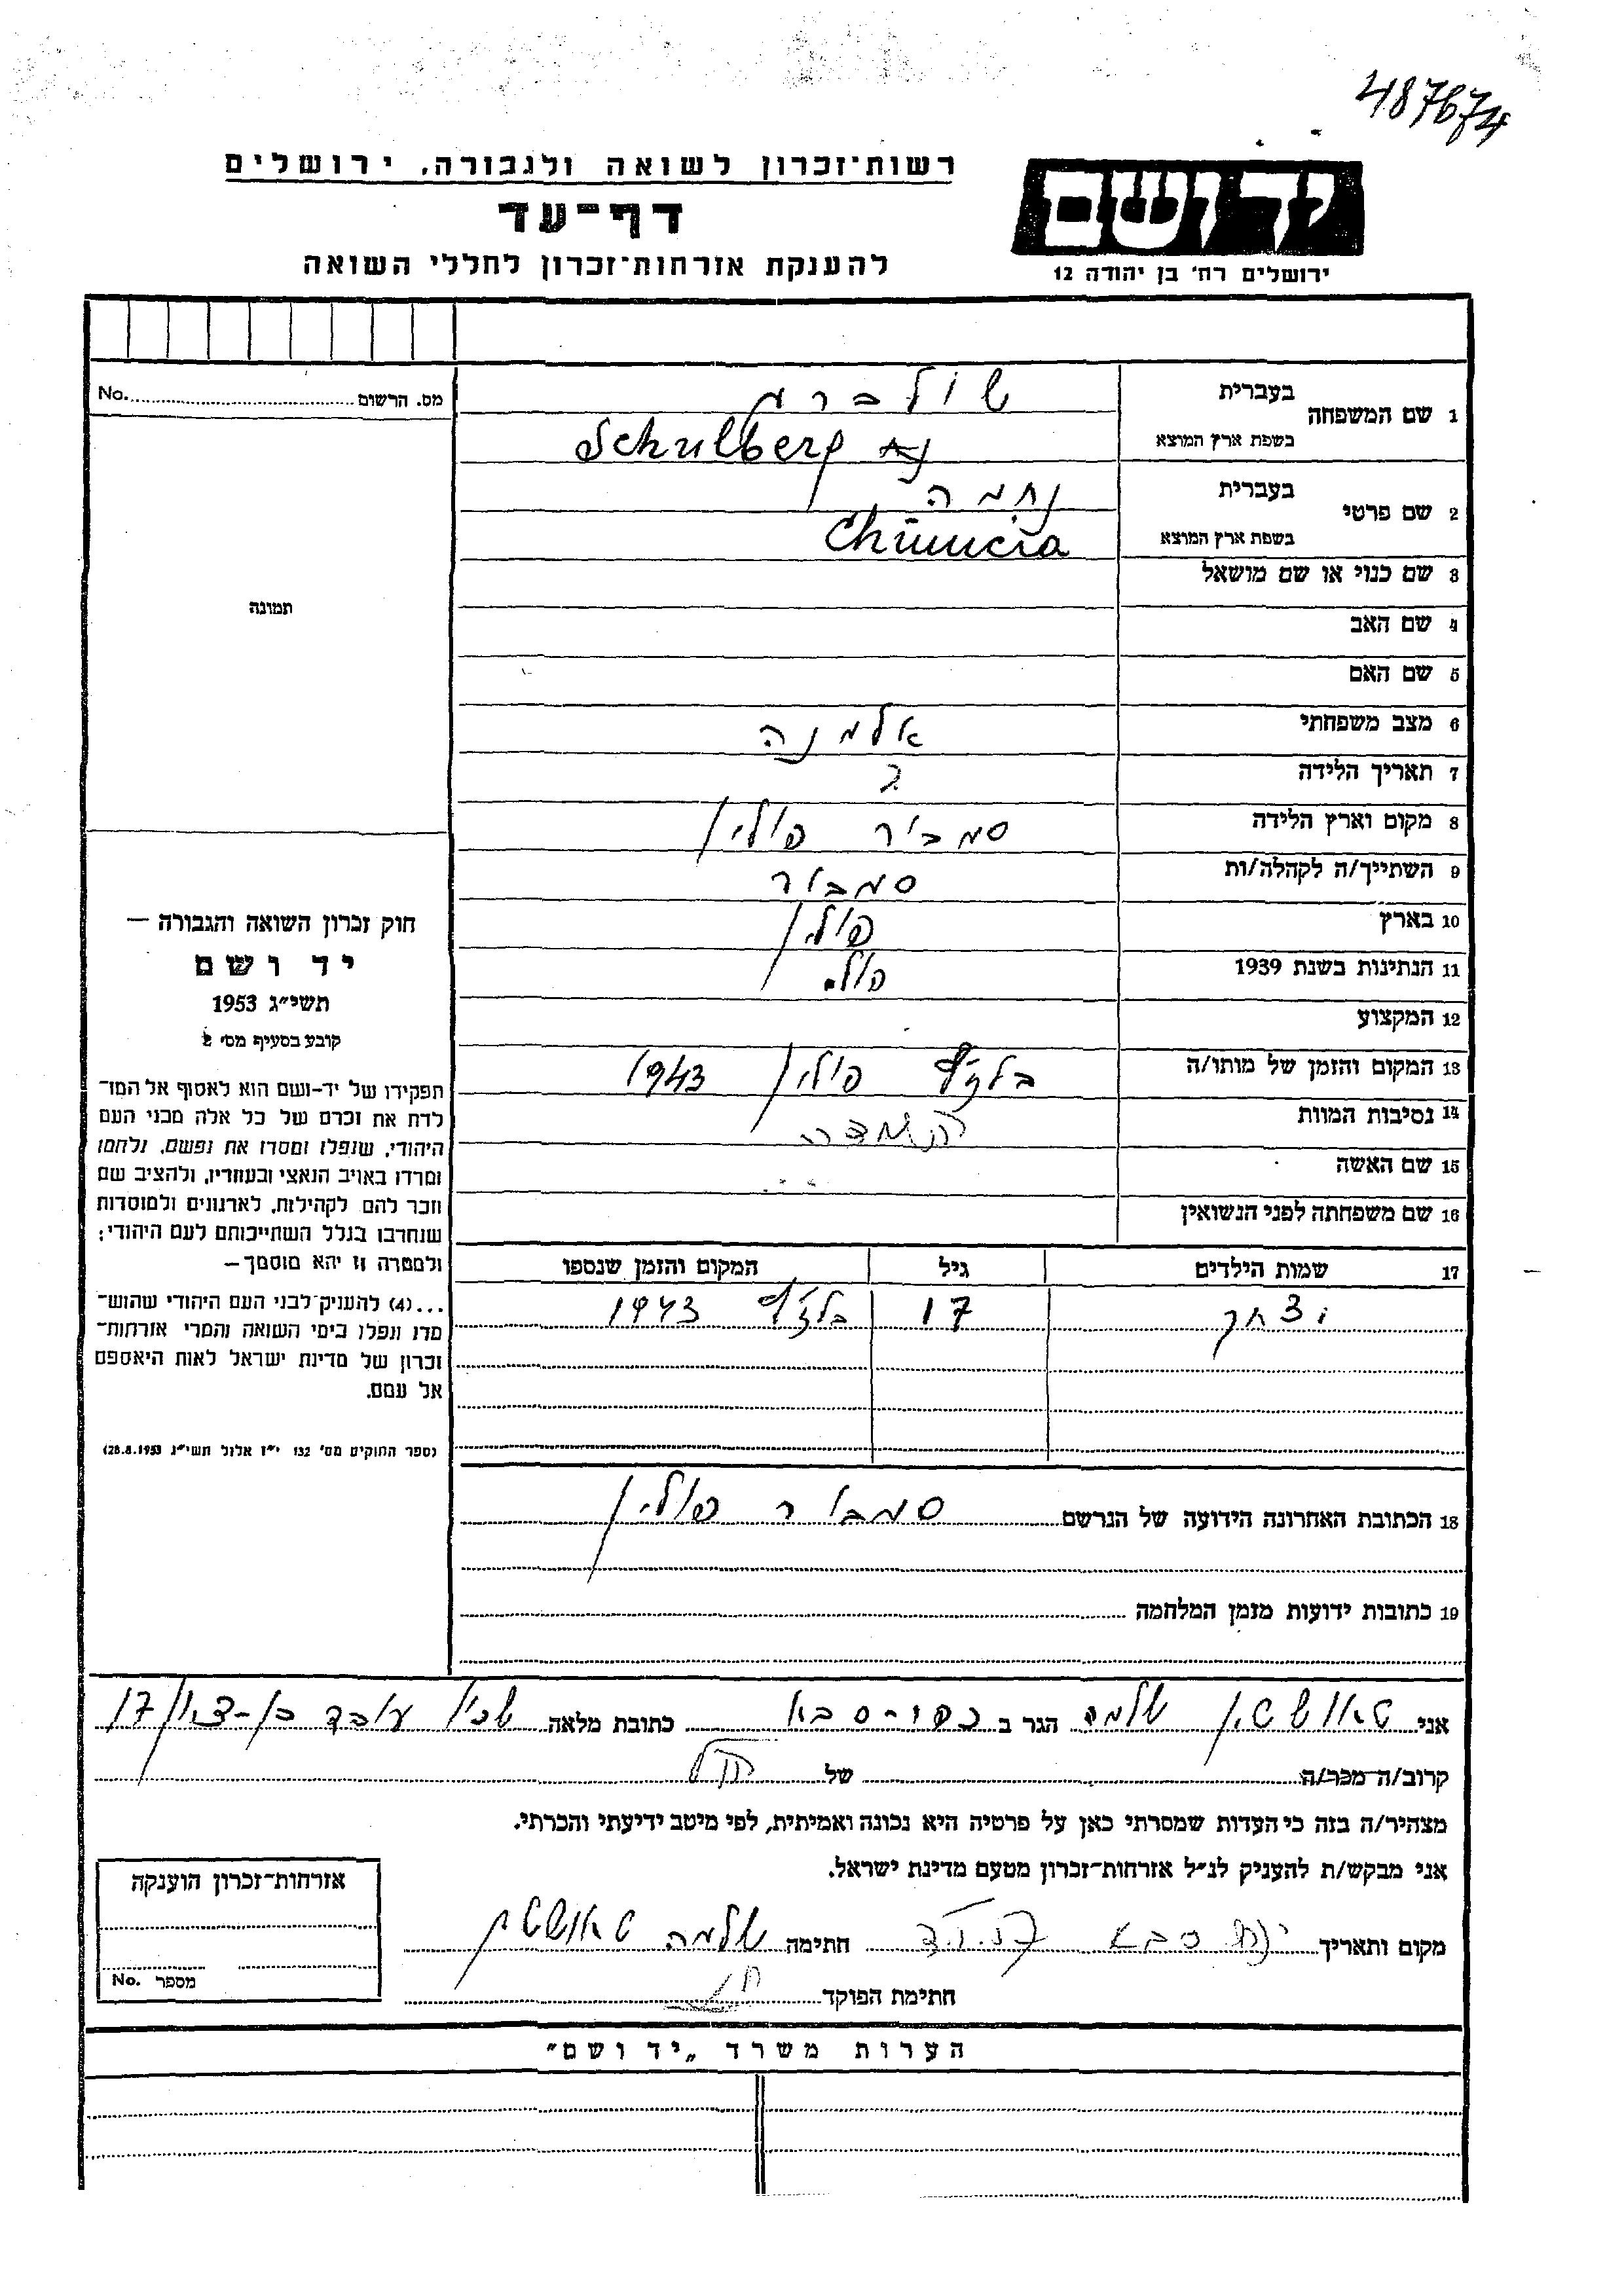 487674
רשות־זכרון לשואה ולגבורה, ירושלים
יד ושם
דף־עד
להענקת אזרחות־זכרון לחללי השואה
ירושלים רח' בן יהודה 12
מס. הרשום No.
1 שם המשפחה בעברית שולברג
בשפת ארץ המוצא Schulberg
2 שם פרטי בעברית נחמה
בשפת ארץ המוצא
3 שם כנוי או שם מושאל
4 שם האב
5 שם האם
6 מצב משפחתי אלמנה
7 תאריך הלידה ?
8 מקום וארץ הלידה סמבור פולין
9 השתייך/ה לקהלה/ות סמבור
10 בארץ פולין
11 הנתינות בשנת 1939 פול.
12 המקצוע
13 המקום והזמן של מותו/ה בלז'ץ פולין 1943
14 נסיבות המוות השמדה
15 שם האשה
16 שם משפחתה לפני הנשואין
17 שמות הילדים גיל המקום והזמן שנספו
יצחק 17 בלז'ץ 1943
18 הכתובת האחרונה הידועה של הנרשם סמבור פולין
19 כתובות ידועות מזמן המלחמה
תמונה
חוק זכרון השואה והגבורה —
יד ושם
תשי״ג 1953
קובע בסעיף מס' 2
תפקידו של יד-ושם הוא לאסוף אל המו־
לדת את זכרם של כל אלה מבני העם
היהודי, שנפלו ומסרו את נפשם, נלחמו
ומרדו באויב הנאצי ובעוזריו, ולהציב שם
וזכר להם לקהילות, לארגונים ולמוסדות
שנחרבו בגלל השתייכותם לעם היהודי;
ולמטרה זו יהא מוסמך —
...(4) להעניק לבני העם היהודי שהוש־
מדו ונפלו בימי השואה והמרי אזרחות־
זכרון של מדינת ישראל לאות היאספם
אל עמם.
(ספר החוקים מס' 132 י״ז אלול תשי״ג 28.8.1953)
אני טאושטין שלמה הגר ב כפר-סבא כתובת מלאה שכון עובד בן-ציון 17
קרוב/ה מכר/ה של הנ״ל
מצהיר/ה בזה כי העדות שמסרתי כאן על פרטיה היא נכונה ואמיתית, לפי מיטב ידיעתי והכרתי.
אני מבקש/ת להעניק לנ״ל אזרחות־זכרון מטעם מדינת ישראל.
מקום ותאריך סבא חתימה שלמה טאושטין
חתימת הפוקד
אזרחות־זכרון הוענקה
מספר No.
הערות משרד „יד ושם״